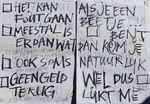 HET KAN
FOUT GAAN
MEESTAL IS
ER DAN WAT
OOK SOMS
GEEN GELD
TERUG
ALS JE EEN
BEETJE
BENT
DAN KOM JE
NATUURLIJK
WEL DUS
LUKT ME